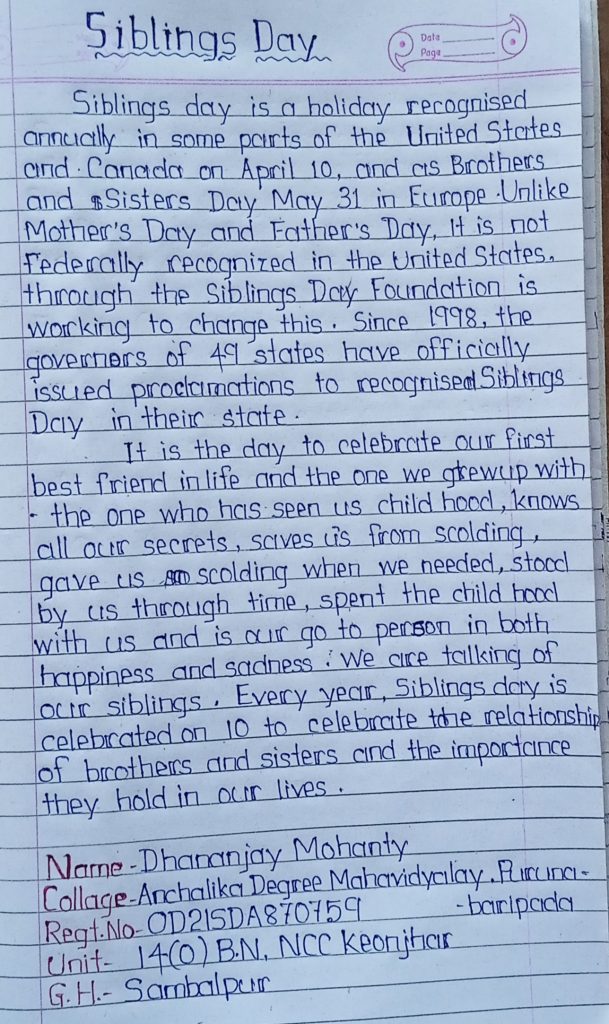 Siblings Day
Date
Page
Siblings day is a holiday recognised
annually in some parts of the United States
and Canada on April 10, and as Brothers
and Sisters Day May 31 in Europe. Unlike
Mother's Day and Father's Day, It is not
Federally recognized in the United States,
through the Siblings Day Foundation is
working to change this. Since 1998, the
governers of 49 states have officially
issued proclamations to recognised Siblings
Day in their state.
It is the day to celebrate our first
best friend in life and the one we grewup with
- the one who has seen us child hood, knows
all our secrets, saves us from scolding,
gave us scolding when we needed, stood
by us through time, spent the child hood
with us and is our go to person in both
happiness and sadness. We are talking of
our siblings. Every year, Siblings day is
celebrated on 10 to celebrate the relationship
of brothers and sisters and the importance
they hold in our lives.
Name - Dhananjay Mohanty
Collage - Anchalika Degree Mahavidyalay, Puruna-
Regt.No - OD21SDA870759 -baripada
Unit - 14(O) B.N, NCC Keonjhar
G.H. - Sambalpur